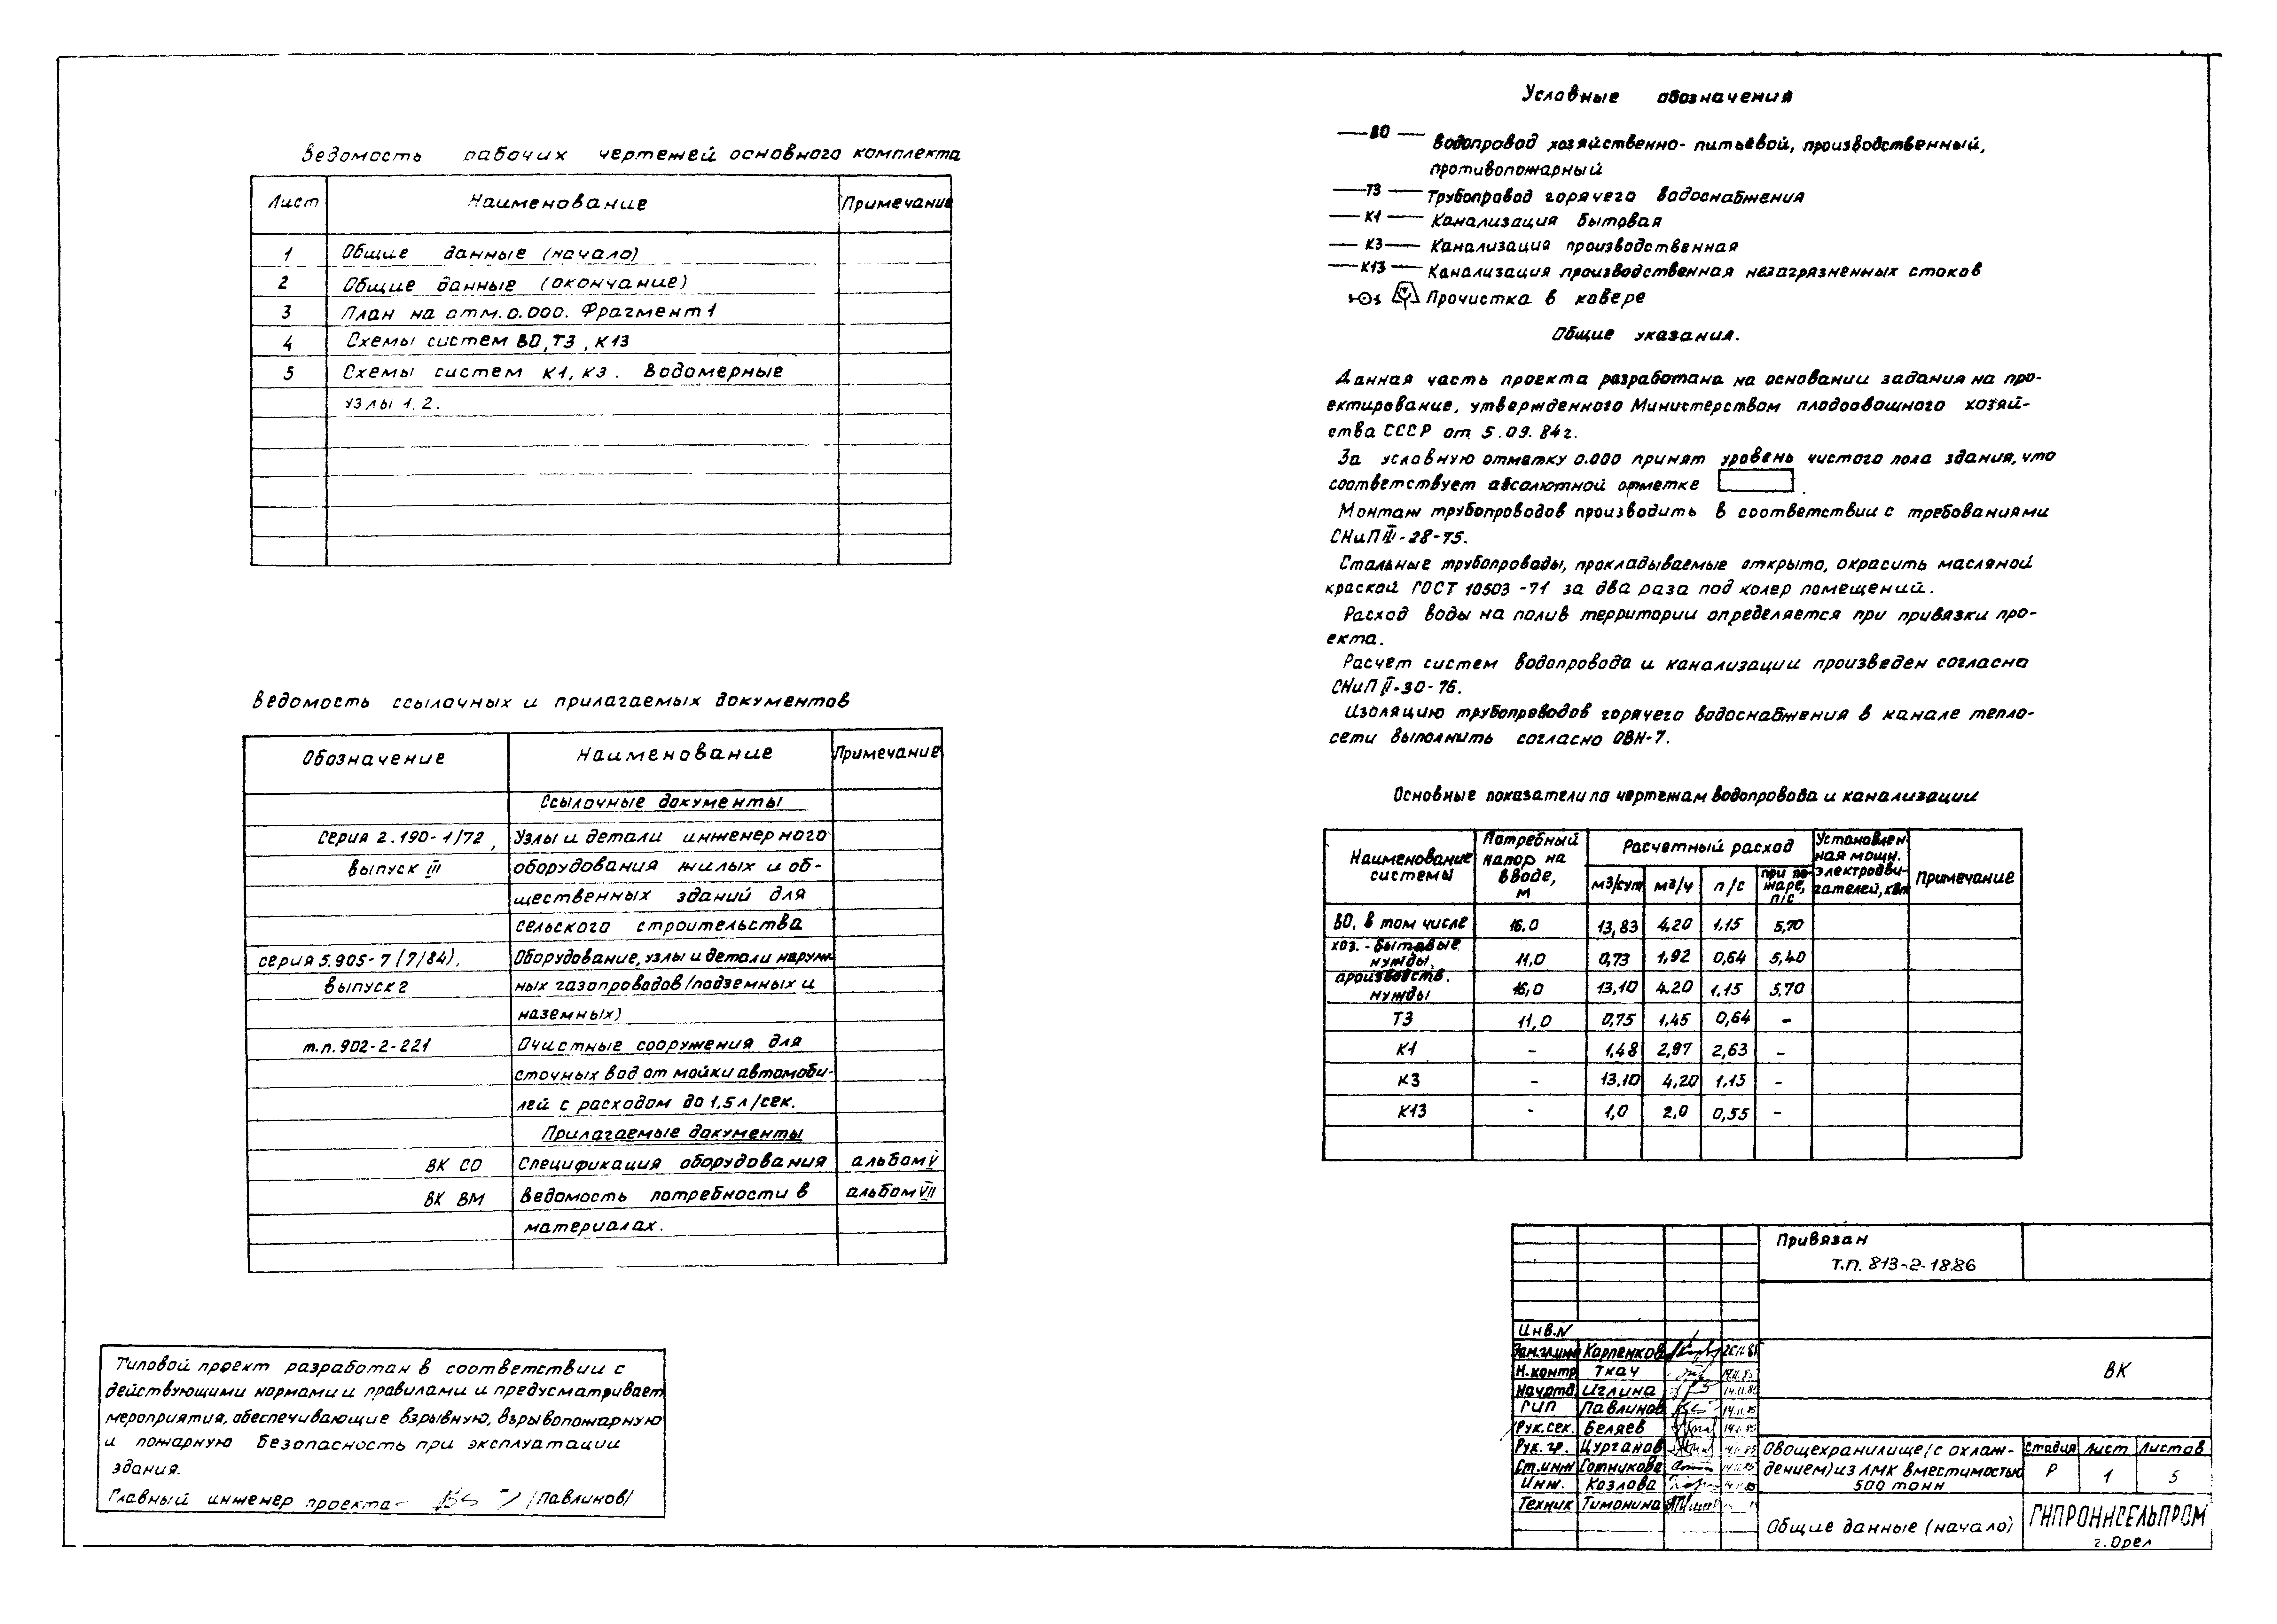 Ведомость рабочих чертежей основного комплекта
Лист Наименование Примечание
1 Общие данные (начало)
2 Общие данные (окончание)
3 План на отм. 0.000. Фрагмент 1
4 Схемы систем ВО, Т3, К13
5 Схемы систем К1, К3. Водомерные
узлы 1, 2.
Ведомость ссылочных и прилагаемых документов
Обозначение Наименование Примечание
Ссылочные документы
Серия 2.190-1/72, Узлы и детали инженерного
выпуск III оборудования жилых и об-
щественных зданий для
сельского строительства
серия 5.905-7 (7/84), Оборудование, узлы и детали наруж-
выпуск 2 ных газопроводов/подземных и
наземных)
т.п. 902-2-221 Очистные сооружения для
сточных вод от мойки автомоби-
лей с расходом до 1,5 л/сек.
Прилагаемые документы
ВК СО Спецификация оборудования альбом V
ВК ВМ Ведомость потребности в альбом VII
материалах.
Типовой проект разработан в соответствии с
действующими нормами и правилами и предусматривает
мероприятия, обеспечивающие взрывную, взрывопожарную
и пожарную безопасность при эксплуатации
здания.
Главный инженер проекта- /Павлинов/
Условные обозначения
ВО Водопровод хозяйственно-питьевой, производственный,
противопожарный
Т3 Трубопровод горячего водоснабжения
К1 Канализация бытовая
К3 Канализация производственная
К13 Канализация производственная незагрязненных стоков
Прочистка в ковере
Общие указания.
Данная часть проекта разработана на основании задания на про-
ектирование, утвержденного Министерством плодоовощного хозяй-
ства СССР от 5.09.84г.
За условную отметку 0.000 принят уровень чистого пола здания, что
соответствует абсолютной отметке .
Монтаж трубопроводов производить в соответствии с требованиями
СНиП III-28-75.
Стальные трубопроводы, прокладываемые открыто, окрасить масляной
краской ГОСТ 10503-71 за два раза под колер помещений.
Расход воды на полив территории определяется при привязки про-
екта.
Расчет систем водопровода и канализации произведен согласно
СНиП II-30-76.
Изоляцию трубопроводов горячего водоснабжения в канале тепло-
сети выполнить согласно ОВН-7.
Основные показатели по чертежам водопровода и канализации
Наименование системы Потребный напор на вводе, м Расчетный расход Установлен-
ная мощн. электродви-
гателей, квт Примечание
м3/сут м3/ч л/с при по-
жаре, л/с
ВО, в том числе 16,0 13,83 4,20 1,15 5,70
хоз.-бытовые нужды, 11,0 0,73 1,92 0,64 5,40
производств. нужды 16,0 13,10 4,20 1,15 5,70
Т3 11,0 0,75 1,45 0,64 -
К1 - 1,48 2,97 2,63 -
К3 - 13,10 4,20 1,15 -
К13 - 1,0 2,0 0,55 -
Привязан
Т.П. 813-2-18.86
Инв.N
Зам.гл.инж Карпенков
Н.контр Ткач
Нач.отд Иглина 14.11.85
ГИП Павлинов 14.11.85
Рук.сек. Беляев
Рук. гр. Цурганов
Ст.инж Сотникова
Инж. Козлова
Техник Тимонина
ВК
Овощехранилище/с охлаж-
дением) из ЛМК вместимостью
500 тонн
Стадия Лист Листов
Р 1 5
Общие данные (начало)
ГИПРОНИСЕЛЬПРОМ
г. Орел